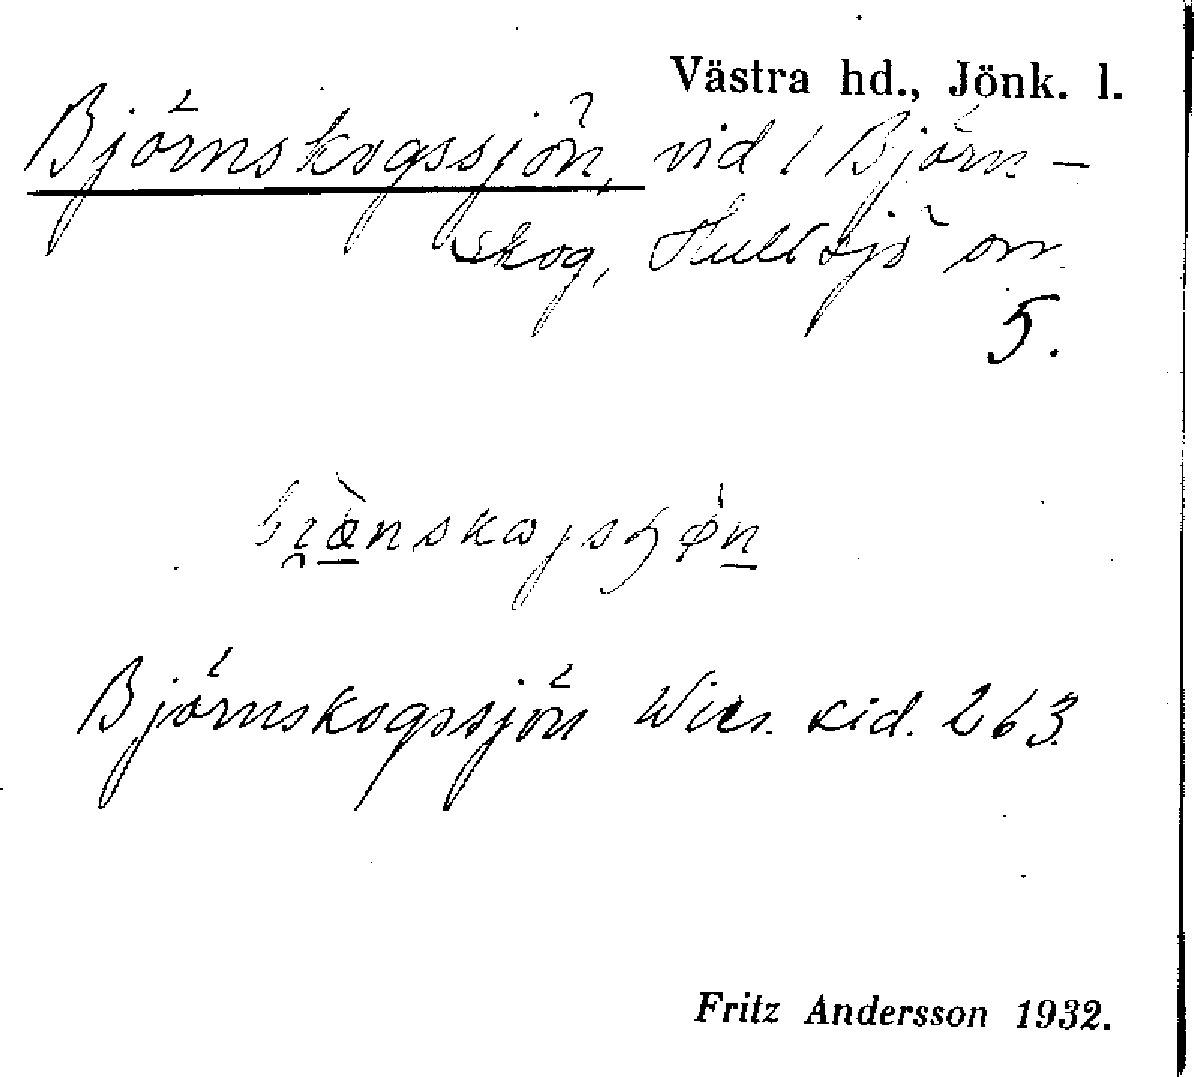 Västra hd., Jönk. l.
Björnskogssjön, vid / Björn-
skog, Hultsjö sn
5.
Björnskogssjön Wies. sid. 263.
Fritz Andersson 1932.